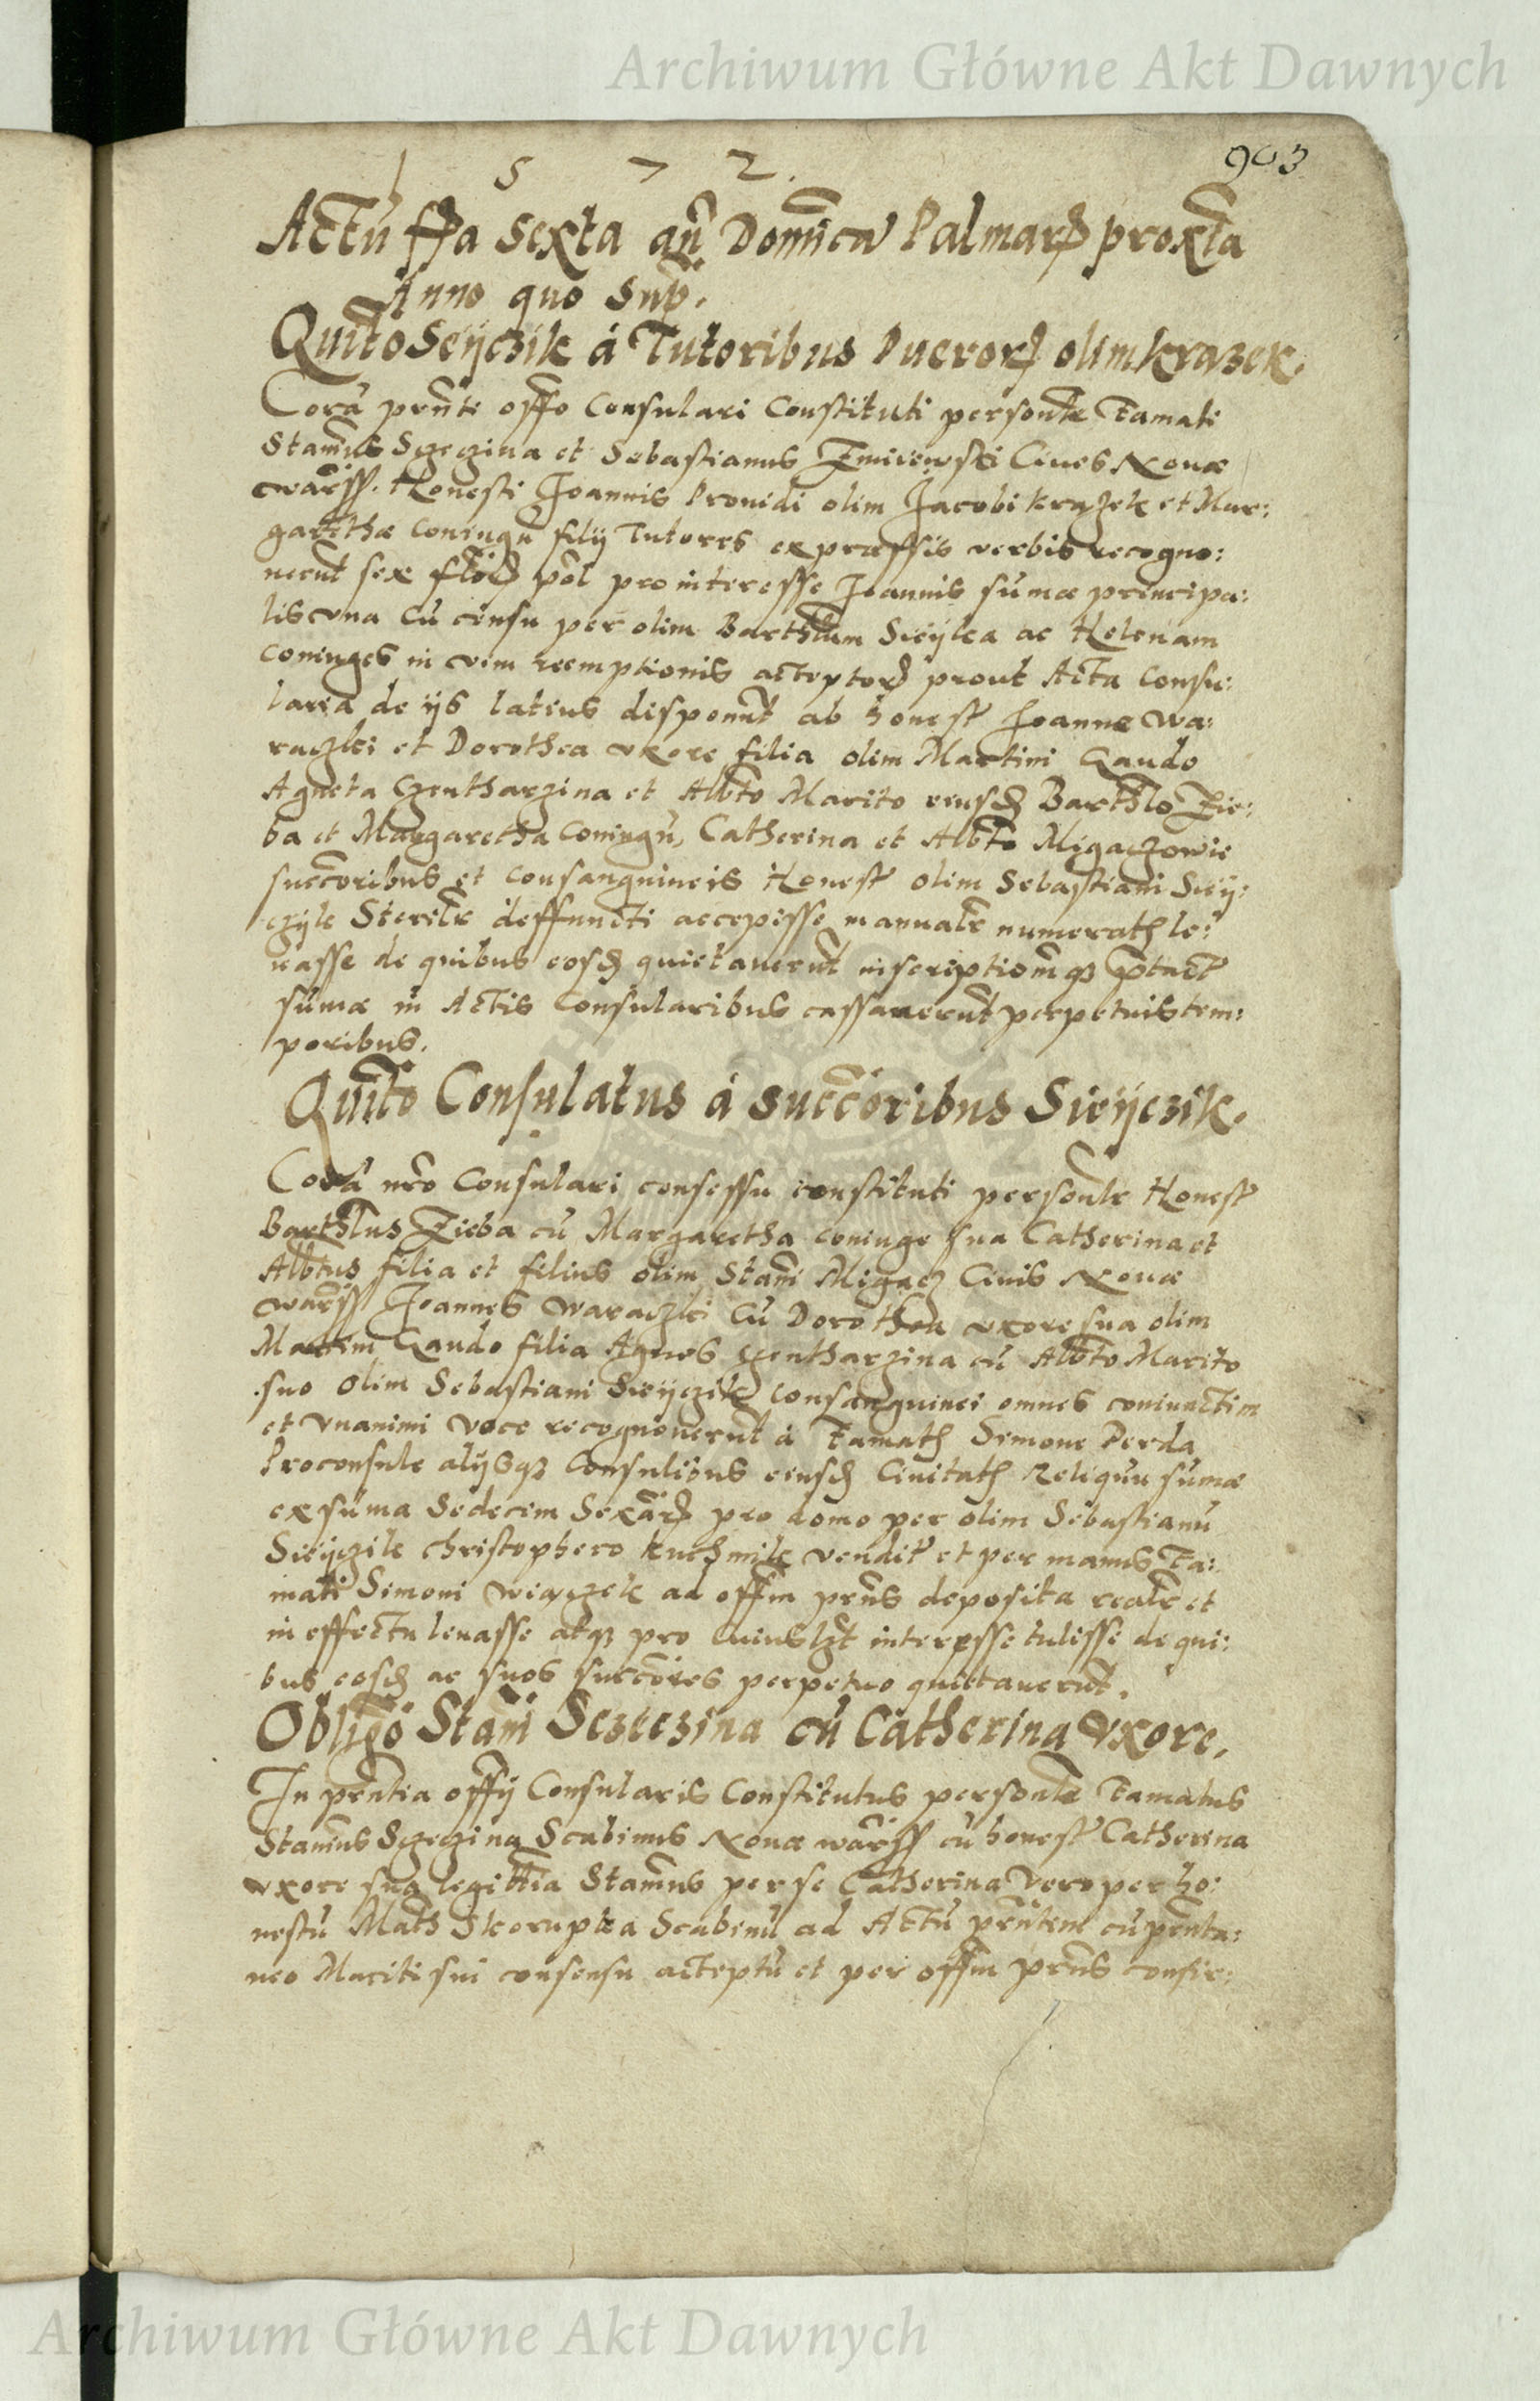 Archiwum Główne Akt Dawnych
1 5 7 2.
903
Actũ ffia Sexta añ Domĩca Palmarꝝ proxĩa
Anno quo Supͣ.
Quitͦ Seÿczik á Tutoribus Puerorꝝ olim krazek.
Corã prñte offo Consulari Constituti personlr̃ Famati
Stanĩus Szczezina et Sebastianus Zmiiewski Ciues Nouæ
Warss. Honesti Joannis Prouidi olim Jacobi krazek et Mar:
garethæ coniugũ filij Tutores expræssis verbis recogno:
uerũt sex flõrꝝ põl pro interesse Joannis sum̃æ principa:
lis vna cũ censu per olim Barthlũm Sieÿlca ac Helenam
coniuges in vim reemptionis acteptorꝝ prout Acta Consu:
laria de ijs latius disponũt ab honest Joanne Wa:
raczki et Dorothea vxore filia olim Martini Gaudo
Agneta Czentharzina et Albto Marito eiusd Barthlo Zie:
ba et Margaretha Coniugũ, Catherina et Albto Migaczowie
succoribus et consanguineis Honest olim Sebastiani Sieÿ:
czÿk Sterilr̃ deffuncti accepisse manualr̃ numeratq le:
uasse de quibus eosd quietauerũt inscriptiom̃qꝫ p̃tact
sum̃æ in Actis Consularibus cassauerũt perpetuis tem:
poribus.
Quitͦ Consulatus á succoribus Sieÿczik.
Corã nr̃o Consulari consessu constituti personlr̃ Honest
Barthlus Zieba cũ Margaretha coniuge sua Catherina et
Albtus filia et filius olim Stañi Migacz Ciuis Nouæ
Warss Joannes Waraczki Cũ Dorothea vxore sua olim
Martini Gaudo filia Agnes Czentharzina cũ Albto Marito
suo olim Sebastiani Sieÿczik consanguinei omnes coniunctim
et vnanimi voce recognouerũt á Famatq Simone Perda
Proconsule alijsqꝫ Consulibus eiusd Ciuitatq Reliquũ sum̃æ
ex sum̃a Sedecim Sexãrꝝ pro domo per olim Sebastianũ
Sieÿczik Christophero kuchmik vendit et per manus Fa:
mati Simoni Wiaczek ad offm prñs deposita realr̃ et
in effectu leuasse atqꝫ pro cuiuslꝫt interesse tulisse de qui:
bus eosd ac suos succores perpetuo quietauerũt.
Obligo Stañi Sczeczina cũ Catherina Vxore.
In prñtia offij Consularis Constitutus personlr̃ Famatus
Stanĩus Szczezina Scabinus Nouæ warss cũ honest Catherina
vxore sua legittĩa Stanĩus per se Catherina Vero per ho:
nestũ Math Skorupka Scabinũ ad Actũ prñtem cũ prñta:
neo Mariti sui consensu acteptũ et per offm prñs confir:
Archiwum Główne Akt Dawnych